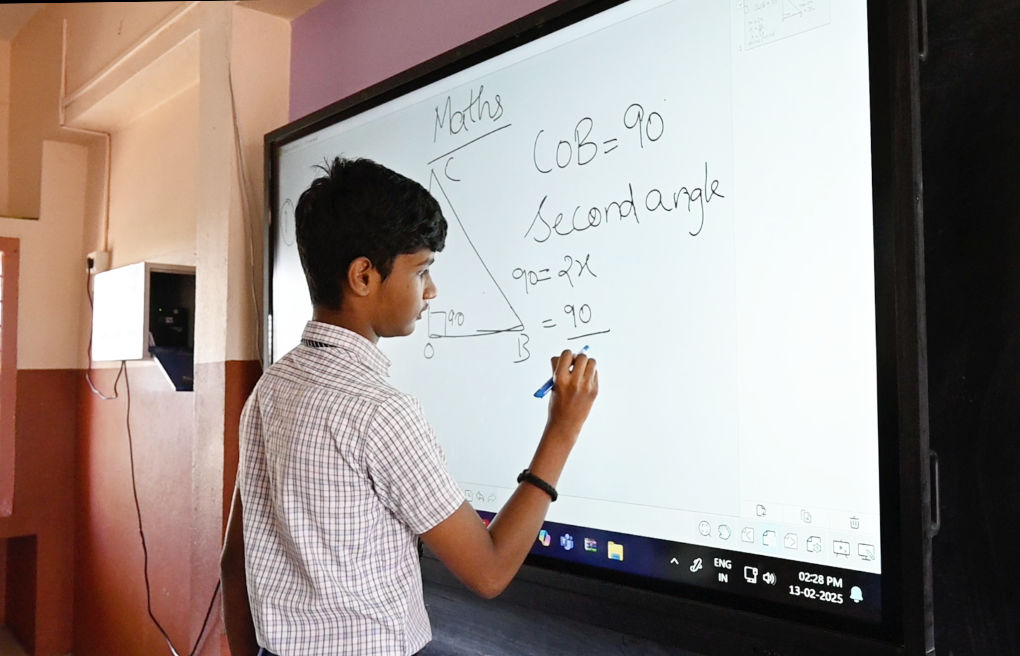 Maths
C
COB = 90
Second angle
90 = 2x
90
= 90
O
B
ENG
IN
02:28 PM
13-02-2025